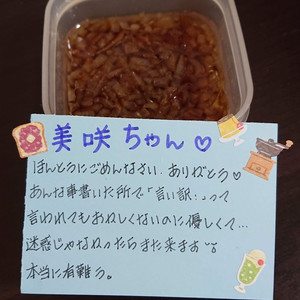 美咲ちゃん♡
ほんとうにごめんなさい。ありがとう♡
あんな事書いた所で「言い訳:」って
言われてもおかしくないのに優しくて…
迷惑じゃなかったらまた来ます
本当に有難う。